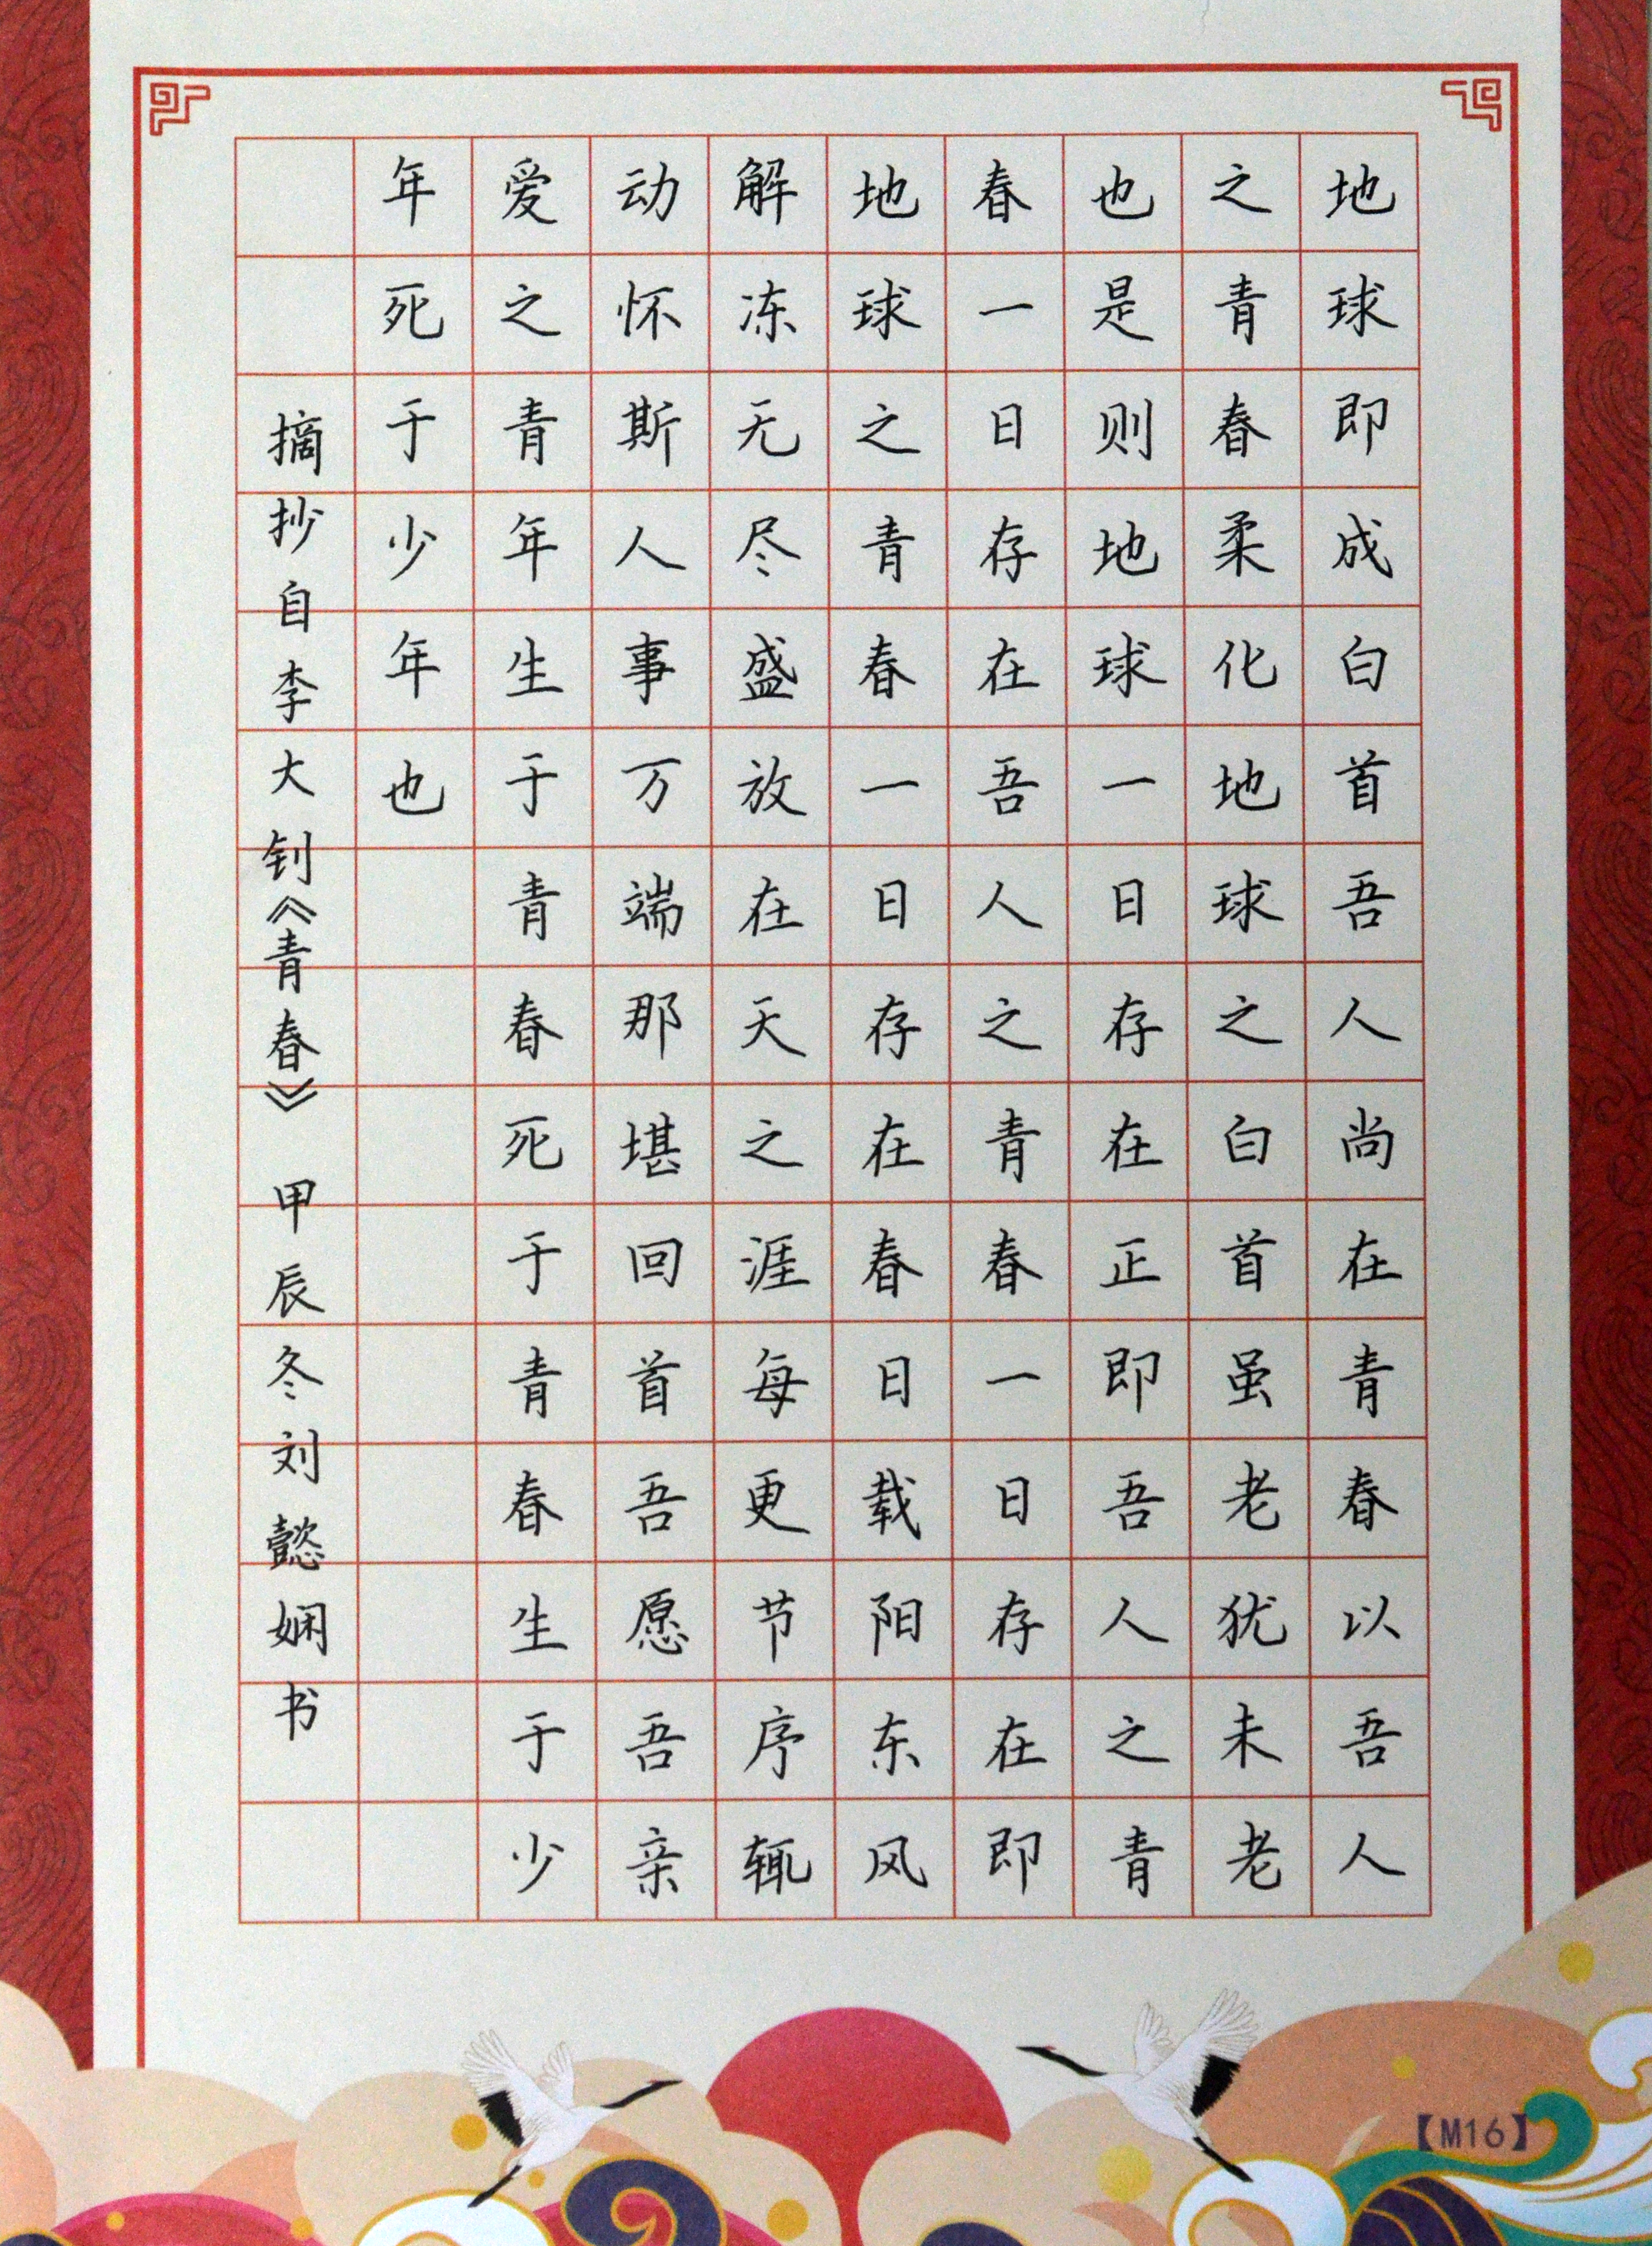 地球即成白首吾人尚在青春以吾人
之青春柔化地球之白首虽老犹未老
也是则地球一日存在正即吾人之青
春一日存在吾人之青春一日存在即
地球之青春一日存在春日载阳东风
解冻无尽盛放在天之涯每更节序辄
动怀斯人事万端那堪回首吾愿吾亲
爱之青年生于青春死于青春生于少
年死于少年也
摘抄自李大钊《青春》 甲辰冬刘懿娴书
【M16】